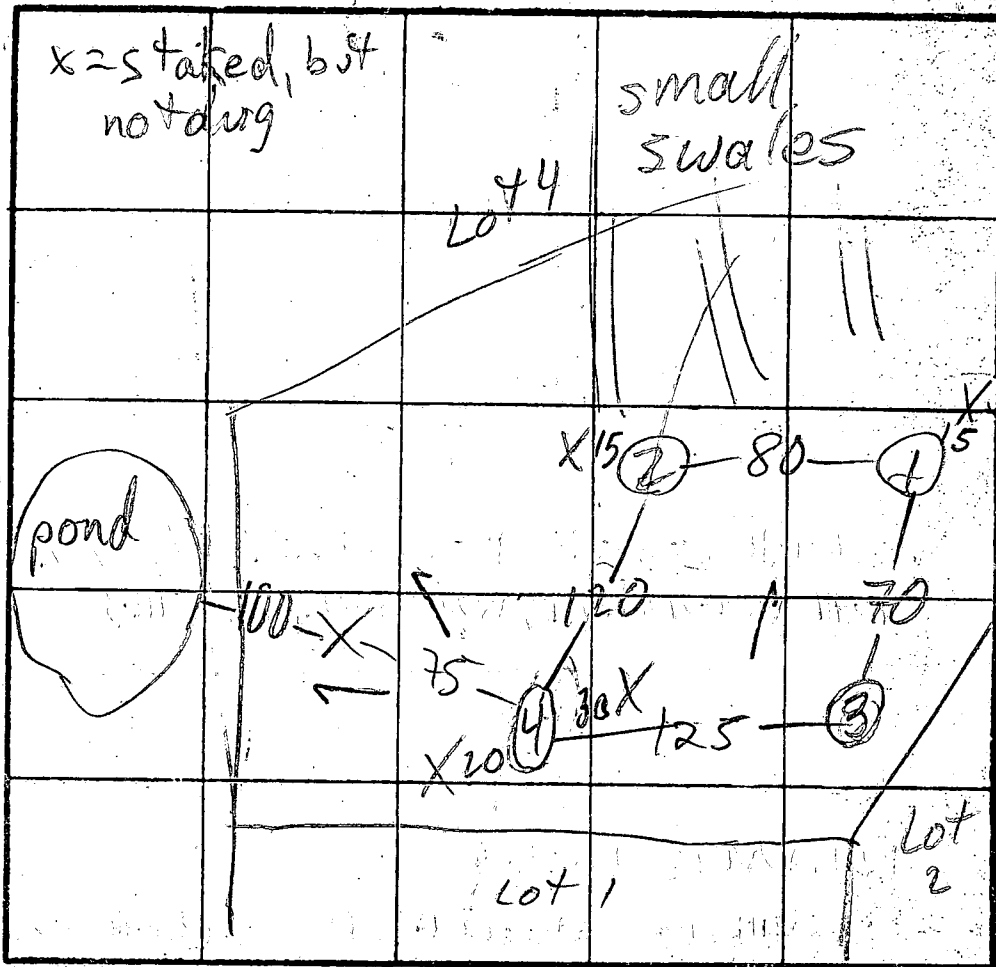 x = staked, but
not dug
small
swales
Lot 4
X 15 2 80 1 15 X
pond
100 X 120 70
75 4 30 X 125 3
X 20
Lot 1
Lot
2